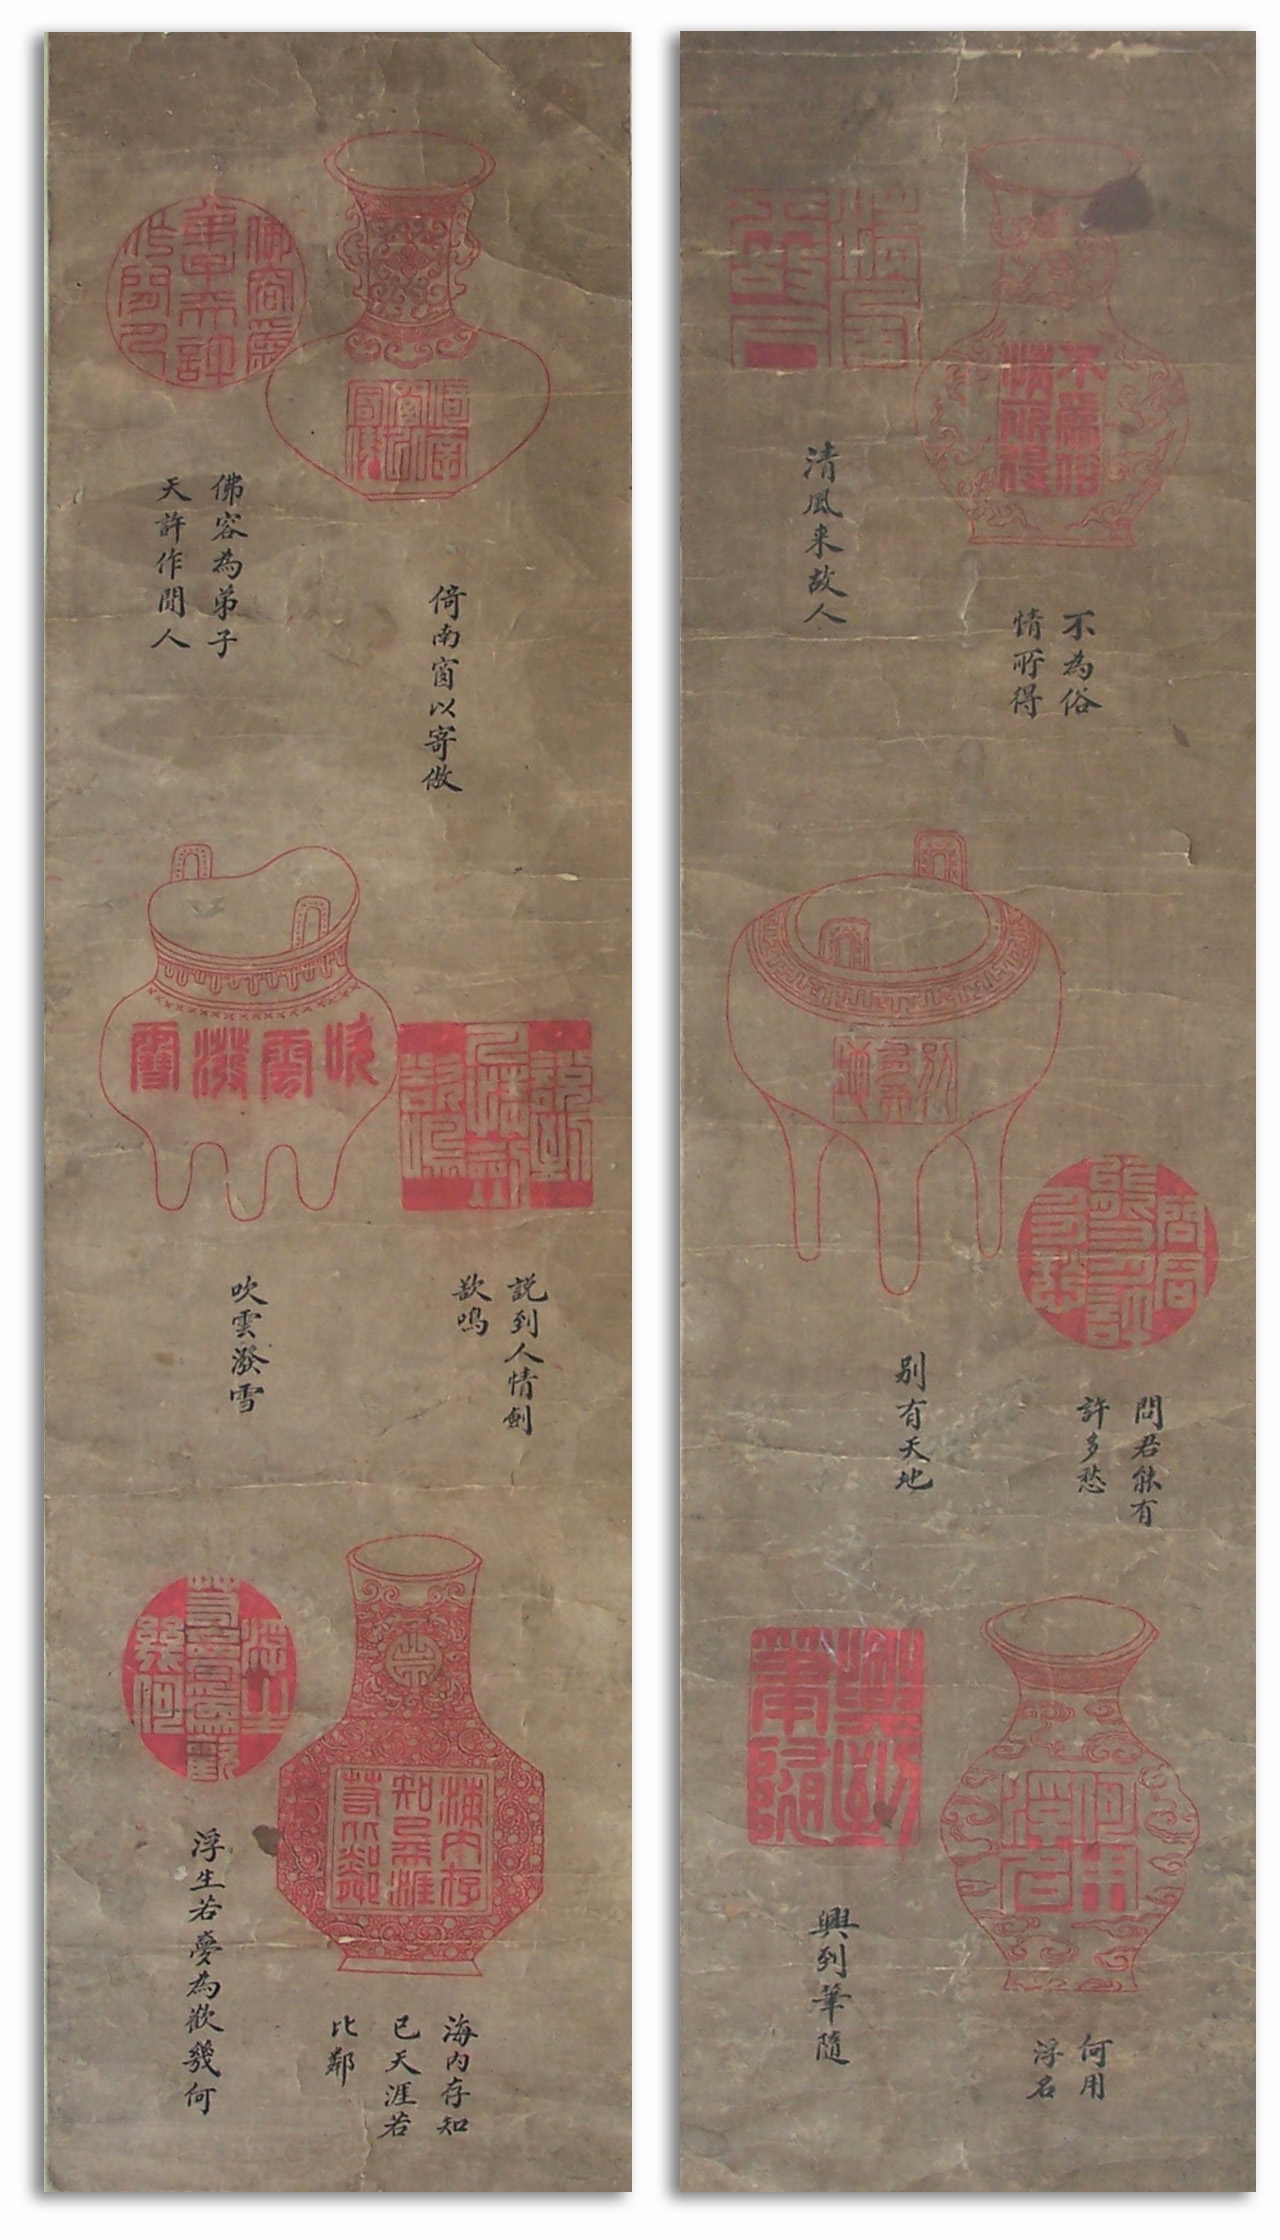 清風来故人
不為俗
情所得
別有天地
問君能有
許多愁
興到筆隨
何用
浮名
佛容為弟子
天許作閒人
倚南窗以寄傲
吹雲潑雪
説到人情劍
欲鳴
浮生若夢為歡幾何
海内存知
已天涯若
比鄰